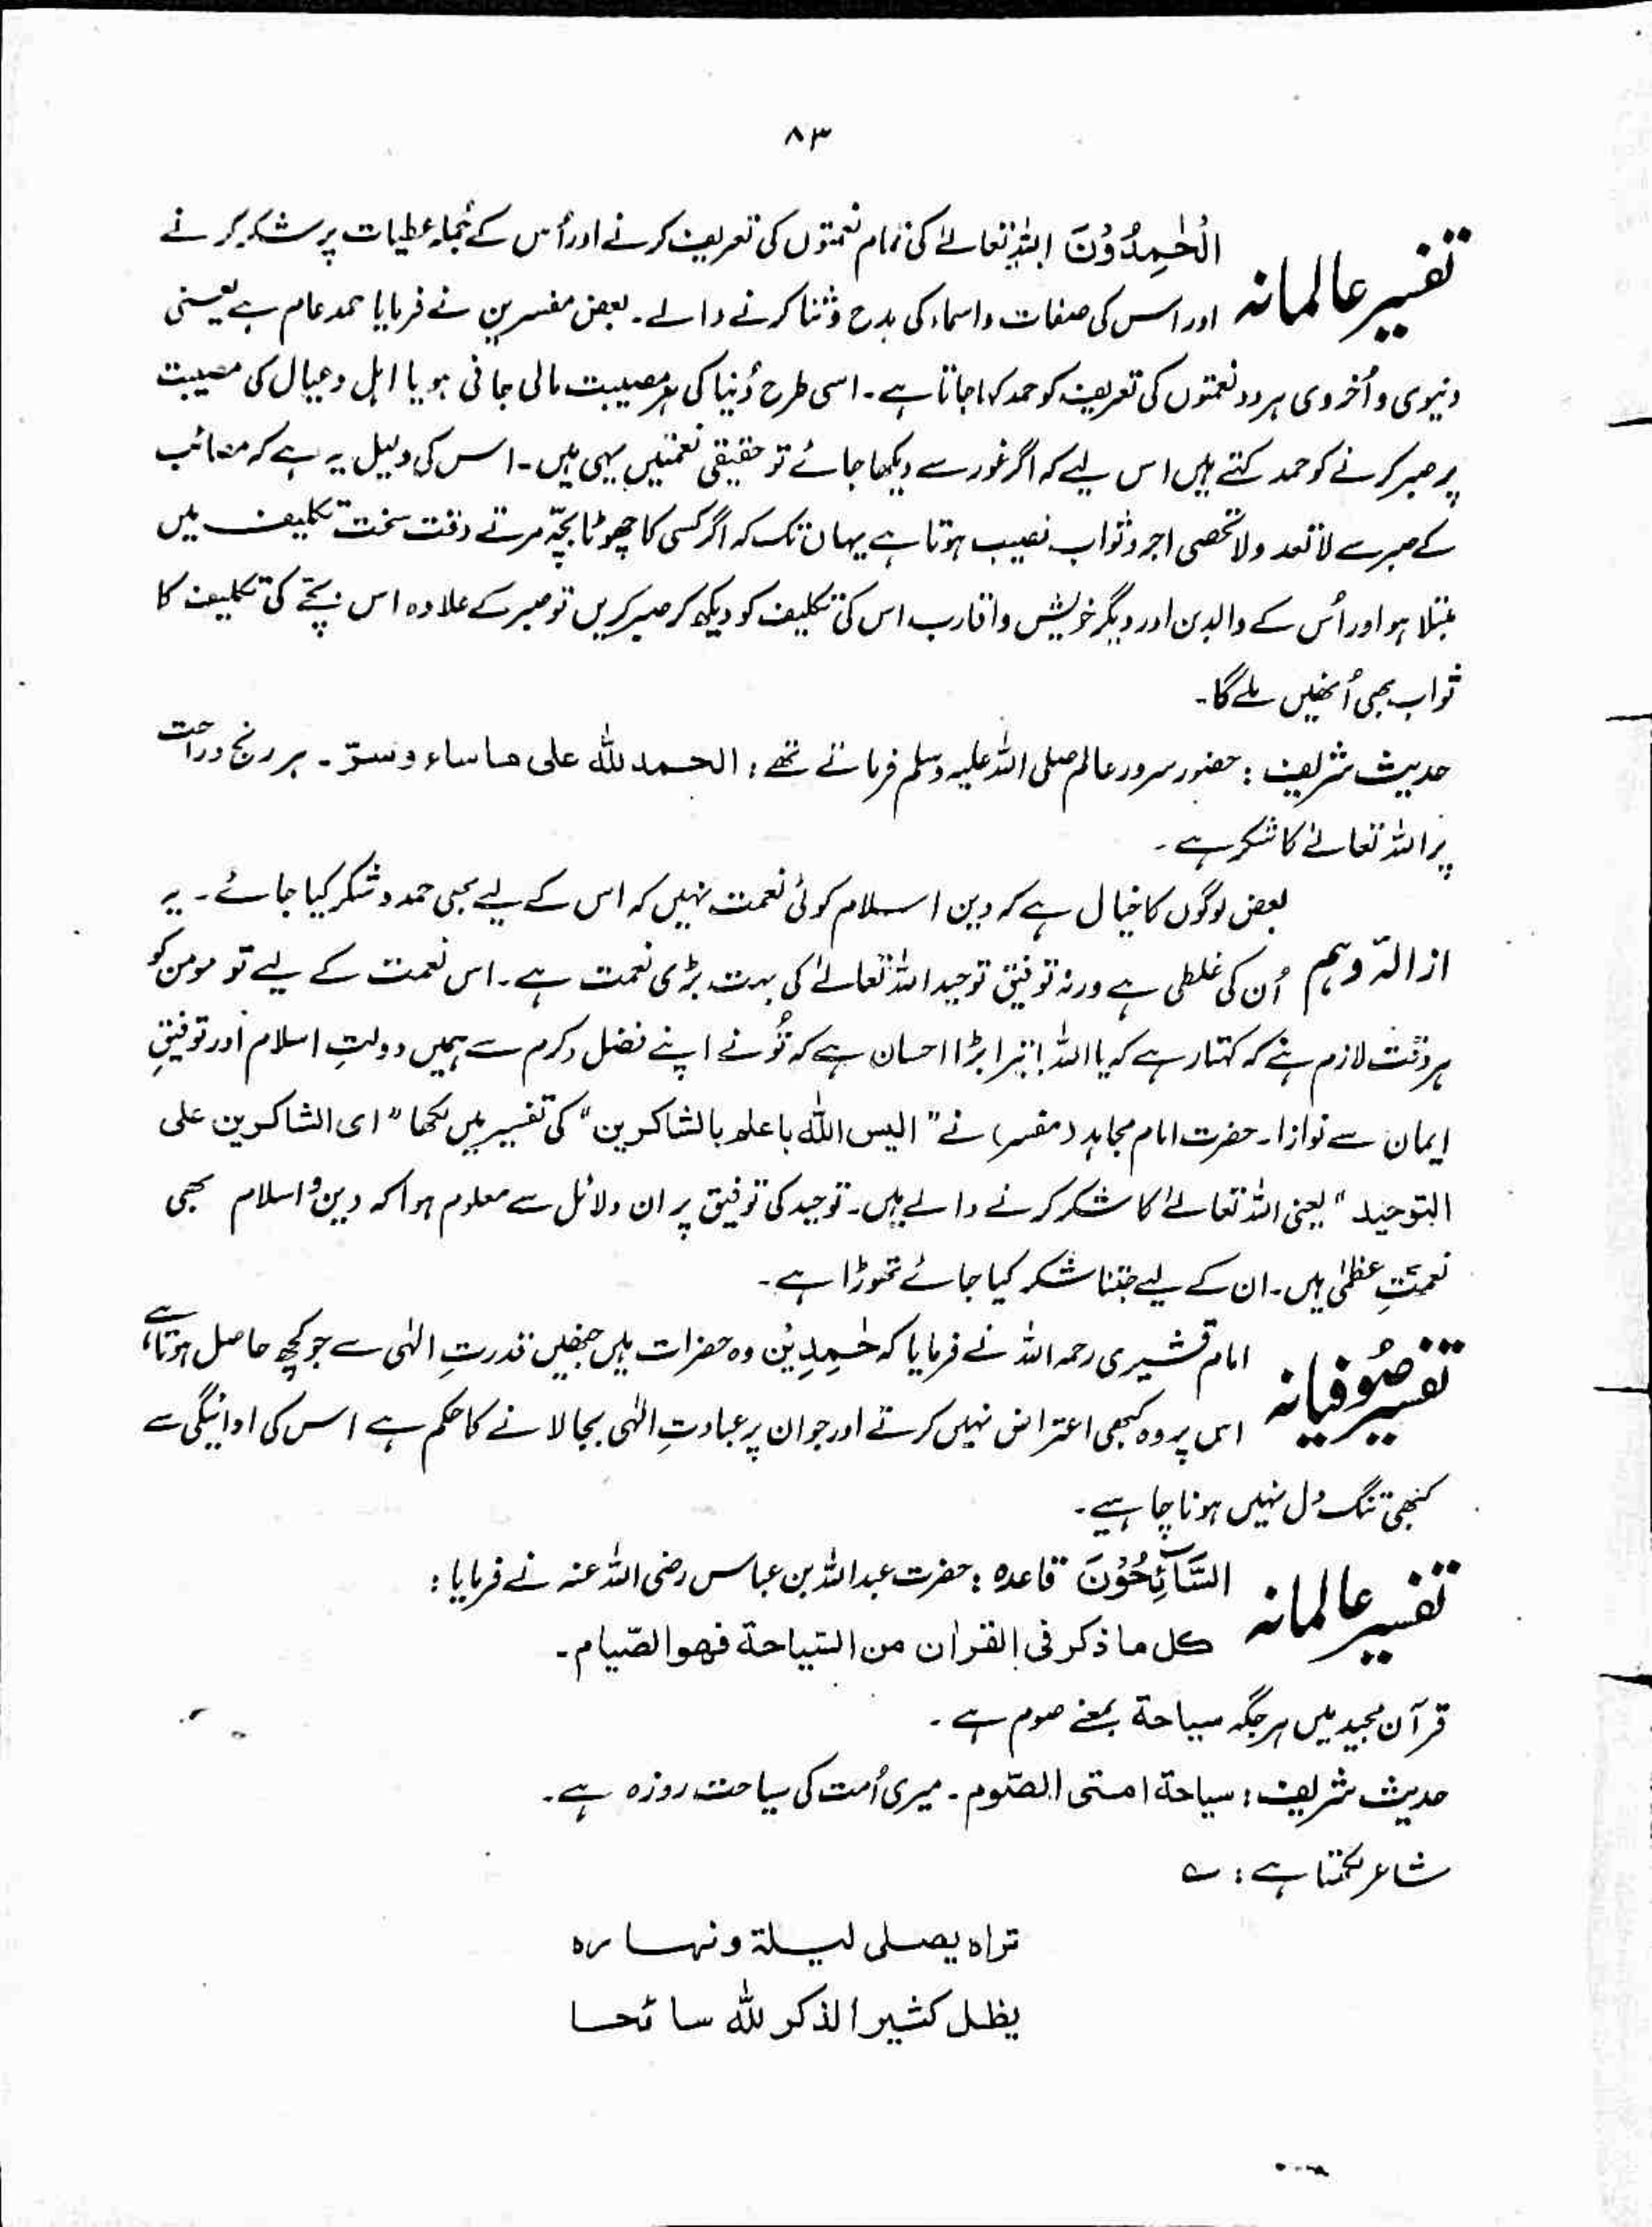 ۸۳
تفسیر عالمانہ
الْحٰمِدُوْنَ اللہ تعالےٰ کی تمام نعمتوں کی تعریف کرنے اور اُس کے جُملہ عطیات پر شکر کرنے
اور اس کی صفات و اسماء کی مدح و ثنا کرنے والے۔ بعض مفسرین نے فرمایا حمد عام ہے یعنی
دنیوی و اُخروی ہر دو نعمتوں کی تعریف کو حمد کہا جاتا ہے۔ اسی طرح دُنیا کی ہر مصیبت مالی جانی ہو یا اہل و عیال کی مصیبت
پر صبر کرنے کو حمد کہتے ہیں اس لیے کہ اگر غور سے دیکھا جائے تو حقیقی نعمتیں یہی ہیں۔ اس کی دلیل یہ ہے کہ مصائب
کے صبر سے لا تعد و لا تحصی اجر و ثواب نصیب ہوتا ہے یہاں تک کہ اگر کسی کا چھوٹا بچّہ مرتے وقت سخت تکلیف میں
مبتلا ہو اور اُس کے والدین اور دیگر خویش و اقارب اس کی تکلیف کو دیکھ کر صبر کریں تو صبر کے علاوہ اس بچّے کی تکلیف کا
ثواب بھی اُنھیں ملے گا۔
حدیث شریف : حضور سرور عالم صلی اللہ علیہ وسلم فرماتے تھے : الحمد للہ علی ما ساء و سرّ۔ ہر رنج و راحت
پر اللہ تعالےٰ کا شکر ہے۔
بعض لوگوں کا خیال ہے کہ دین اسلام کوئی نعمت نہیں کہ اس کے لیے بھی حمد و شکر کیا جائے۔ یہ
ازالۂ وہم اُن کی غلطی ہے ورنہ توفیق توحید اللہ تعالےٰ کی بہت بڑی نعمت ہے۔ اس نعمت کے لیے تو مومن کو
ہر وقت لازم ہے کہ کہتا رہے کہ یا اللہ! تیرا بڑا احسان ہے کہ تُو نے اپنے فضل و کرم سے ہمیں دولتِ اسلام اور توفیقِ
ایمان سے نوازا۔ حضرت امام مجاہد (مفسر) نے "الیس اللہ باعلم بالشاکرین" کی تفسیر میں لکھا "ای الشاکرین علی
التوحید" یعنی اللہ تعالےٰ کا شکر کرنے والے ہیں۔ توحید کی توفیق پر ان دلائل سے معلوم ہوا کہ دین و اسلام بھی
نعمتِ عظمٰی ہیں۔ ان کے لیے جتنا شکر کیا جائے تھوڑا ہے۔
تفسیر صُوفیانہ
امام قشیری رحمہ اللہ نے فرمایا کہ حٰمِدِیْن وہ حضرات ہیں جنھیں قدرتِ الٰہی سے جو کچھ حاصل ہوتا ہے
اس پر وہ کبھی اعتراض نہیں کرتے اور جو ان پر عبادتِ الٰہی بجا لانے کا حکم ہے اس کی ادائیگی سے
کبھی تنگ دل نہیں ہونا چاہیے۔
تفسیر عالمانہ
السَّآئِحُوْنَ قاعدہ : حضرت عبداللہ بن عباس رضی اللہ عنہ نے فرمایا :
کل ما ذکر فی القراٰن من السّیاحة فھو الصّیام۔
قرآن مجید میں ہر جگہ سیاحة بمعنے صوم ہے۔
حدیث شریف : سیاحة امتی الصّوم۔ میری اُمت کی سیاحت روزہ ہے۔
شاعر لکھتا ہے : ؎
تراہ یصلی لیلۃ و نہارہ
یظل کثیر الذکر للہ سائحا